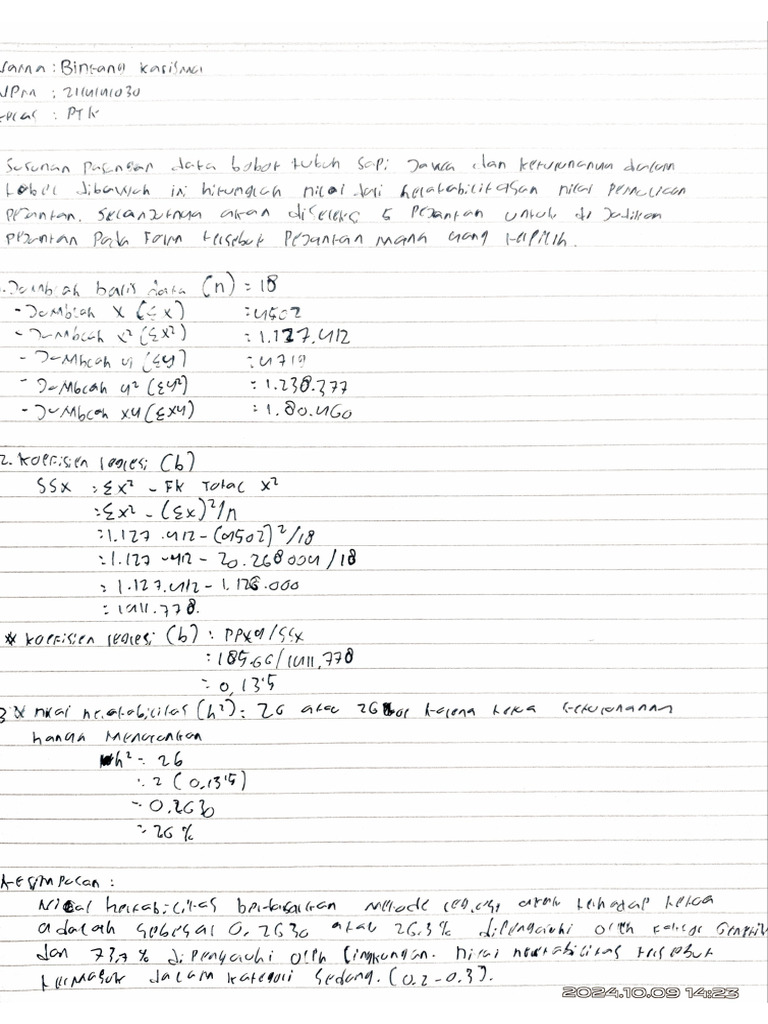 Nama : Bintang Karisma
NPM : 2114141030
Kelas : PTK
Susunan Pasangan data bobot tubuh sapi Jawa dan keturunannya dalam
tabel dibawah ini hitunglah nilai dari heratabilitasan nilai Pemuliaan
Pejantan. Selanjutnya akan diseleksi 5 Pejantan untuk di Jadikan
Pejantan Pada Farm tersebut Pejantan mana yang terpilih.
1. Jumblah baris data (n) = 18
- Jumblah X (Σx) : 4502
- Jumblah x² (Σx²) : 1.127.412
- Jumblah y (Σy) : 4719
- Jumblah y² (Σy²) : 1.238.377
- Jumblah xy (Σxy) : 1.80.460
2. Koefisien regresi (b)
SSx : Σx² - FK Total X²
: Σx² - (Σx)²/n
: 1.127.412 - (4502)²/18
: 1.127.412 - 20.268004/18
: 1.127.412 - 1.126.000
: 1411.778.
* Koefisien regresi (b) : PPxy/SSx
: 185.66/1411,778
: 0,135
3 * nilai heratabilitas (h²) : 2b atau 2b karena tetua keturunannya
hanya Menurunkan
h² = 2b
: 2 (0,135)
= 0.2630
= 26 %
Kesimpulan :
Nilai heritabilitas berdasarkan metode regresi anak terhadap tetua
adalah sebesar 0.2630 atau 26.3% dipengaruhi oleh Genetik
dan 73,7 % dipengaruhi oleh lingkungan. Nilai heritabilitas tersebut
termasuk dalam kategori sedang. (0.2-0.3).
2024.10.09 14:23